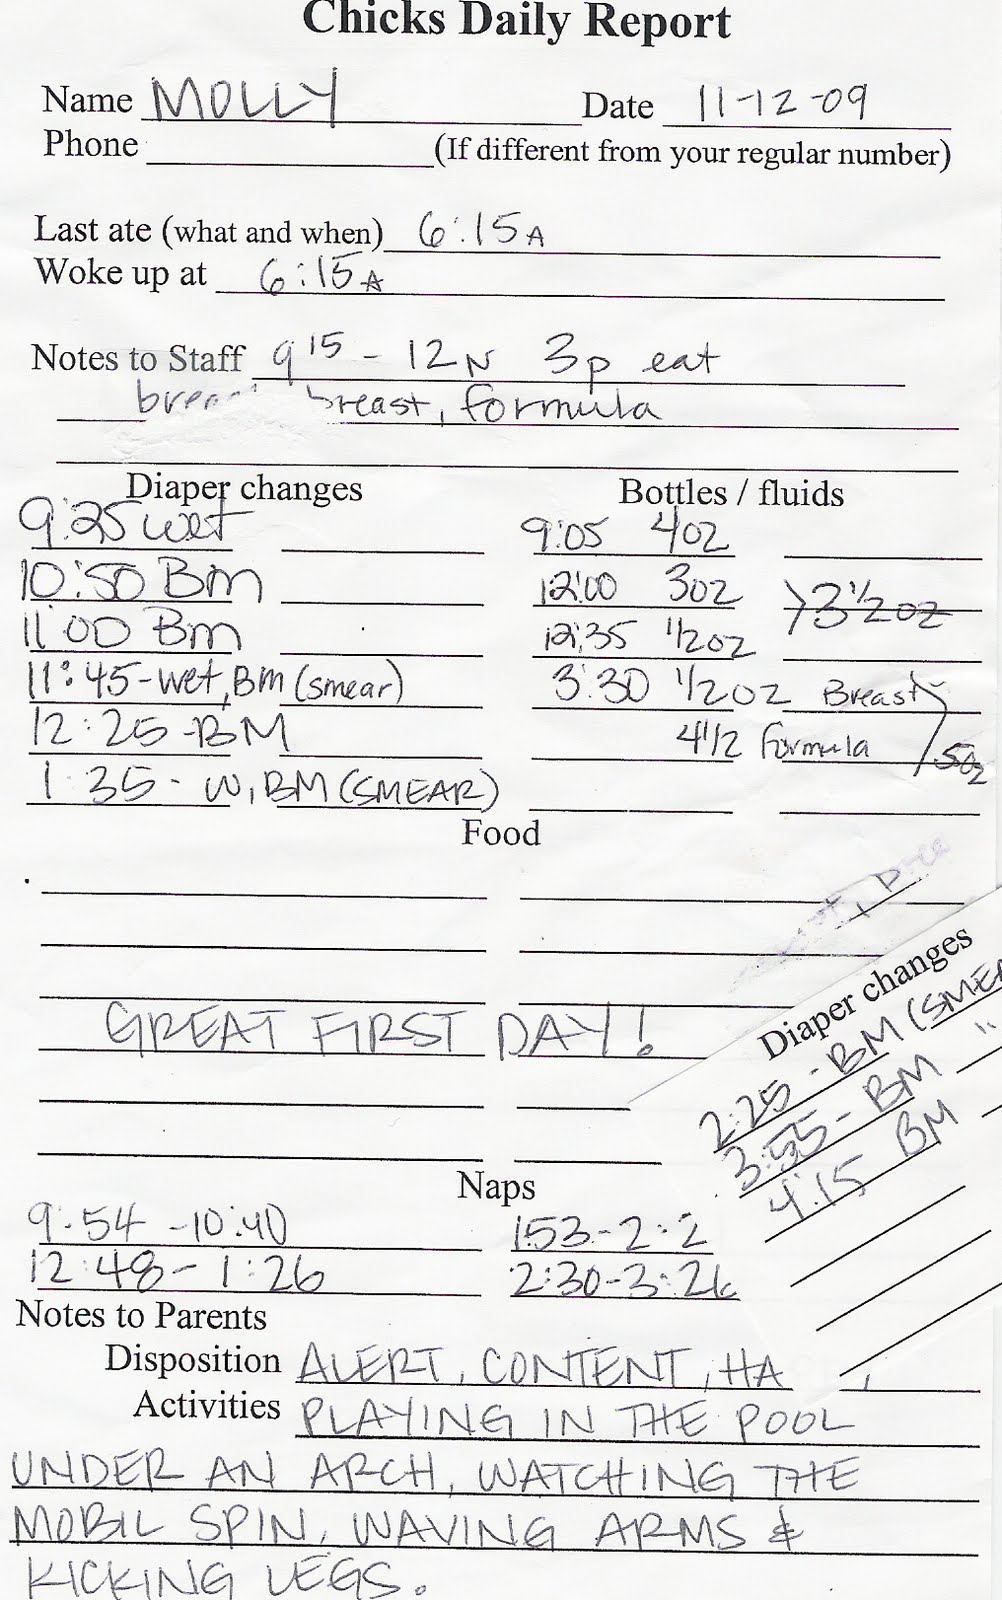 Chicks Daily Report
Name MOLLY Date 11-12-09
Phone (If different from your regular number)
Last ate (what and when) 6:15A
Woke up at 6:15A
Notes to Staff 9 15 - 12N 3p eat
breast, formula
Diaper changes
9:25 wet
10:50 Bm
11:00 Bm
11:45-wet, Bm (smear)
12:25-BM
1:35- W, BM (SMEAR)
Bottles / fluids
9:05 4oz
12:00 3oz
12:35 1/2oz
3 1/2 oz
3:30 1/2oz Breast
4 1/2 formula
5oz
Food
GREAT FIRST DAY!
Diaper changes
2:25 - BM (SMEA
3:55 - BM "
4:15 BM
Naps
9:54 -10:40
12:48- 1:26
1:53-2:2
2:30-3:26
Notes to Parents
Disposition ALERT, CONTENT, HA
Activities PLAYING IN THE POOL
UNDER AN ARCH, WATCHING THE
MOBIL SPIN, WAVING ARMS &
KICKING LEGS.